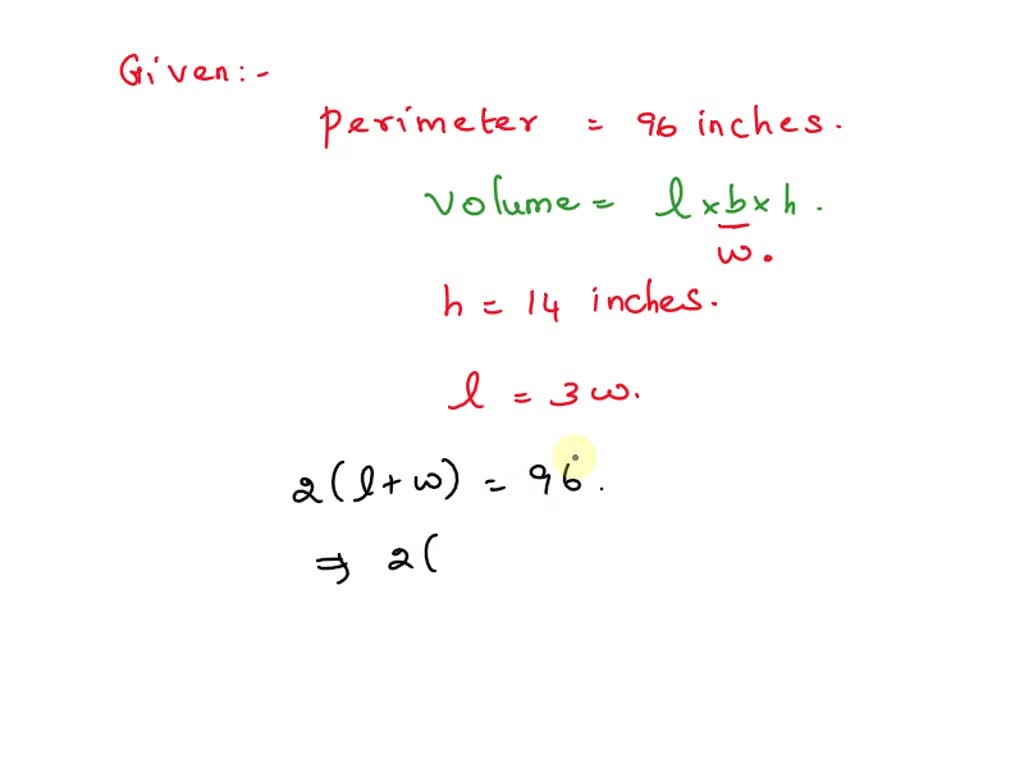 Given:-
perimeter = 96 inches.
volume = l × b × h.
w.
h = 14 inches.
l = 3w.
2(l+w) = 96.
⇒ 2(